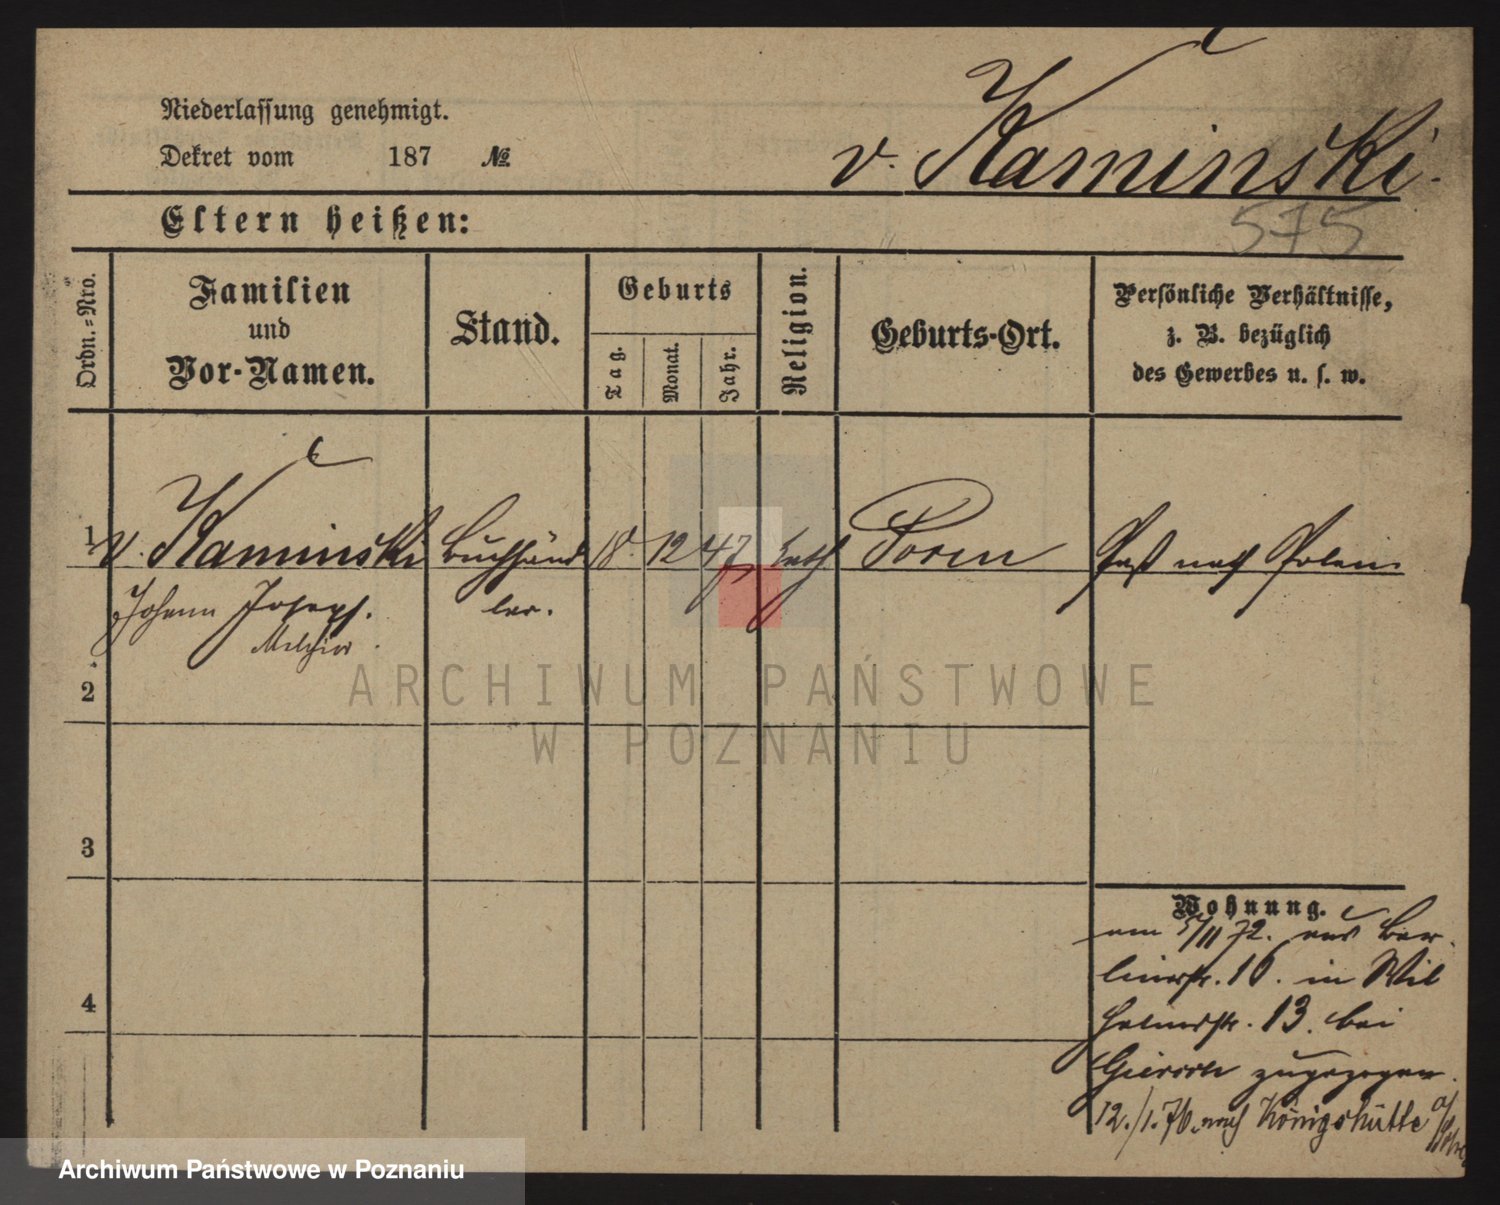 Niederlassung genehmigt.
Dekret vom 187 №
v. Kaminski.
575
Eltern heißen:
Ordn.-Nro.
Familien
und
Vor-Namen.
Stand.
Geburts
Tag.
Monat.
Jahr.
Religion.
Geburts-Ort.
Persönliche Verhältnisse,
z. B. bezüglich
des Gewerbes u. s. w.
1 v. Kaminski Buchhänd 18. 12 47 kath Posen Paß nach Polen.
Johann Joseph. ler.
Melchior.
2
3
4
Wohnung.
am 5/11 72. aus Ber
linerstr. 16. in Wil
helmstr. 13. bei
zugezogen.
12./1.76. nach Königshütte
ARCHIWUM PAŃSTWOWE
W POZNANIU
Archiwum Państwowe w Poznaniu